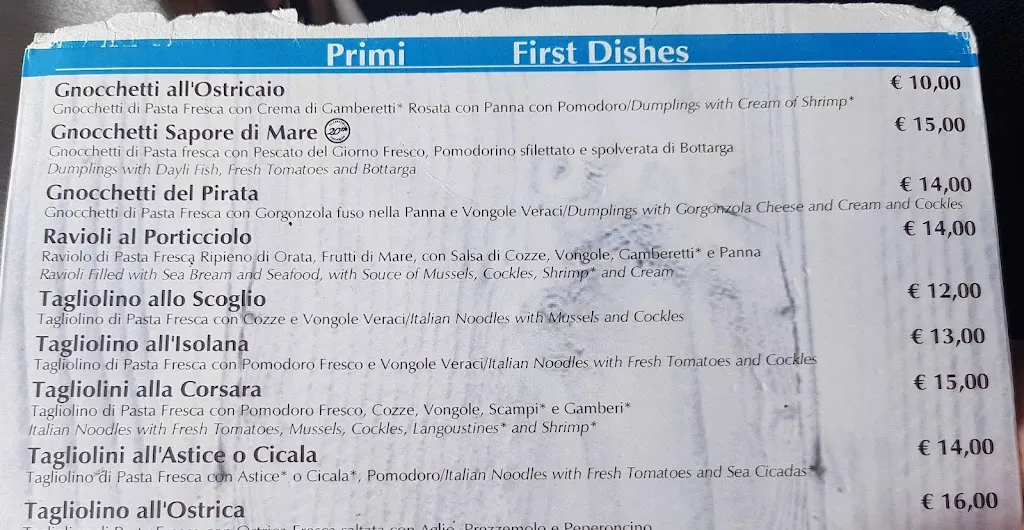 Primi First Dishes
Gnocchetti all'Ostricaio € 10,00
Gnocchetti di Pasta Fresca con Crema di Gamberetti* Rosata con Panna con Pomodoro/Dumplings with Cream of Shrimp*
Gnocchetti Sapore di Mare € 15,00
Gnocchetti di Pasta fresca con Pescato del Giorno Fresco, Pomodorino sfilettato e spolverata di Bottarga
Dumplings with Dayli Fish, Fresh Tomatoes and Bottarga
Gnocchetti del Pirata € 14,00
Gnocchetti di Pasta Fresca con Gorgonzola fuso nella Panna e Vongole Veraci/Dumplings with Gorgonzola Cheese and Cream and Cockles
Ravioli al Porticciolo € 14,00
Raviolo di Pasta Fresca Ripieno di Orata, Frutti di Mare, con Salsa di Cozze, Vongole, Gamberetti* e Panna
Ravioli Filled with Sea Bream and Seafood, with Souce of Mussels, Cockles, Shrimp* and Cream
Tagliolino allo Scoglio € 12,00
Tagliolino di Pasta Fresca con Cozze e Vongole Veraci/Italian Noodles with Mussels and Cockles
Tagliolino all'Isolana € 13,00
Tagliolino di Pasta Fresca con Pomodoro Fresco e Vongole Veraci/Italian Noodles with Fresh Tomatoes and Cockles
Tagliolini alla Corsara € 15,00
Tagliolino di Pasta Fresca con Pomodoro Fresco, Cozze, Vongole, Scampi* e Gamberi*
Italian Noodles with Fresh Tomatoes, Mussels, Cockles, Langoustines* and Shrimp*
Tagliolini all'Astice o Cicala € 14,00
Tagliolino di Pasta Fresca con Astice* o Cicala*, Pomodoro/Italian Noodles with Fresh Tomatoes and Sea Cicadas*
Tagliolino all'Ostrica € 16,00
Tagliolino di Pasta Fresca con Ostrica Fresca saltata con Aglio, Prezzemolo e Peperoncino